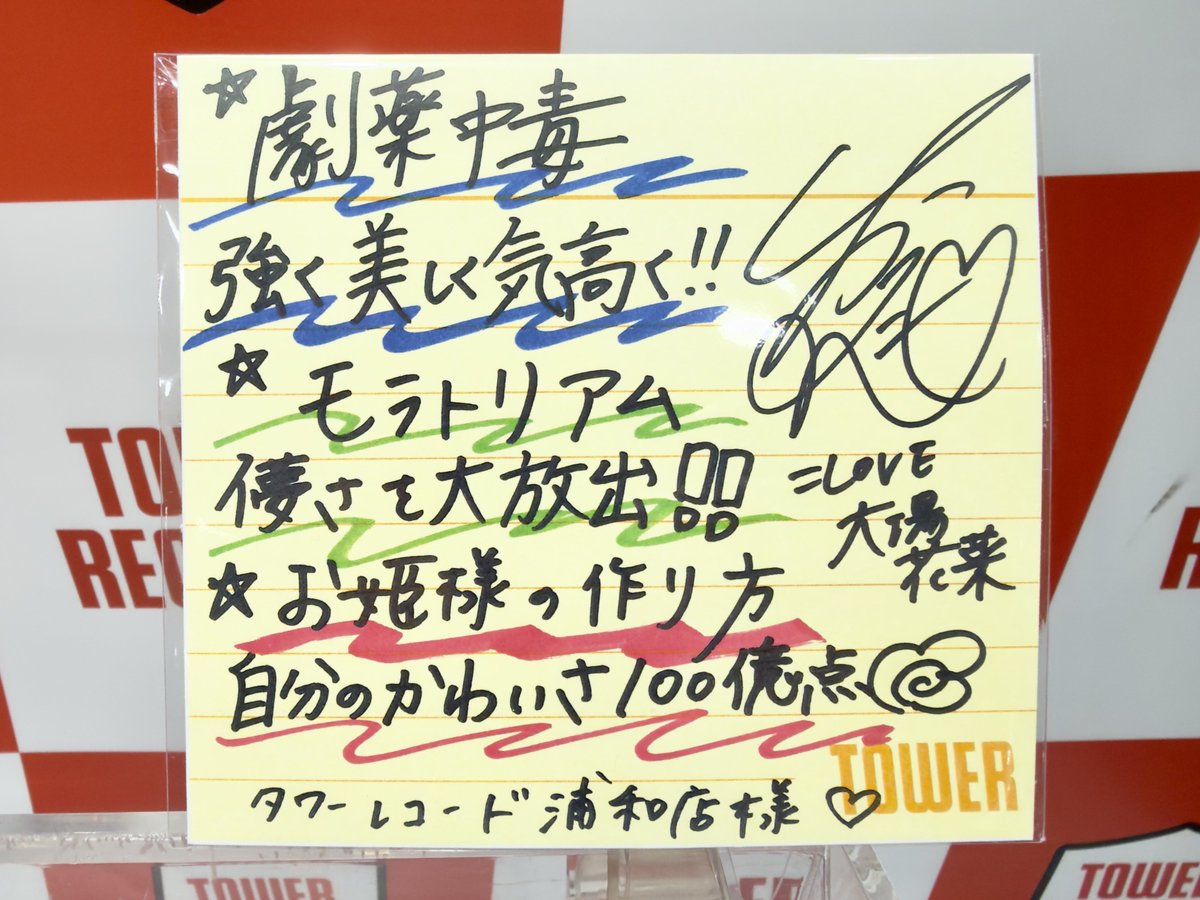 ☆劇薬中毒
強く美しく気高く!!
☆モラトリアム
儚さを大放出!!
☆お姫様の作り方
自分のかわいさ100億点
=LOVE
大場
花菜
タワーレコード浦和店様♡
TOWER
TOWER
REC
TOWER
TOWER